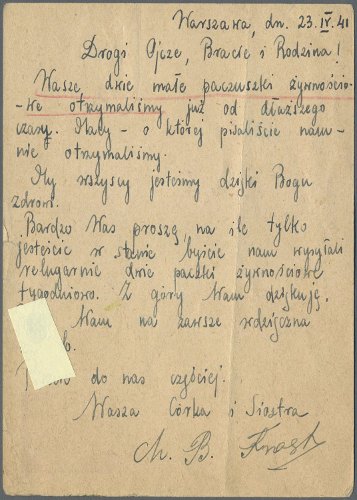 Warszawa, dn. 23.IV.41
Drogi Ojcze, Bracie i Rodzina!
Wasze, dwie małe paczuszki żywnościo-
-we otrzymaliśmy już od dłuższego
czasu. Macy - o której pisaliście nam -
nie otrzymaliśmy.
My wszyscy jesteśmy dzięki Bogu
zdrowi.
Bardzo Was proszę, na ile tylko
jesteście w stanie byście nam wysyłali
regularnie dwie paczki żywnościowe
tygodniowo. Z góry Wam dziękuję.
Wam na zawsze wdzięczna
do nas częściej.
Wasza Córka i Siostra
M. B.